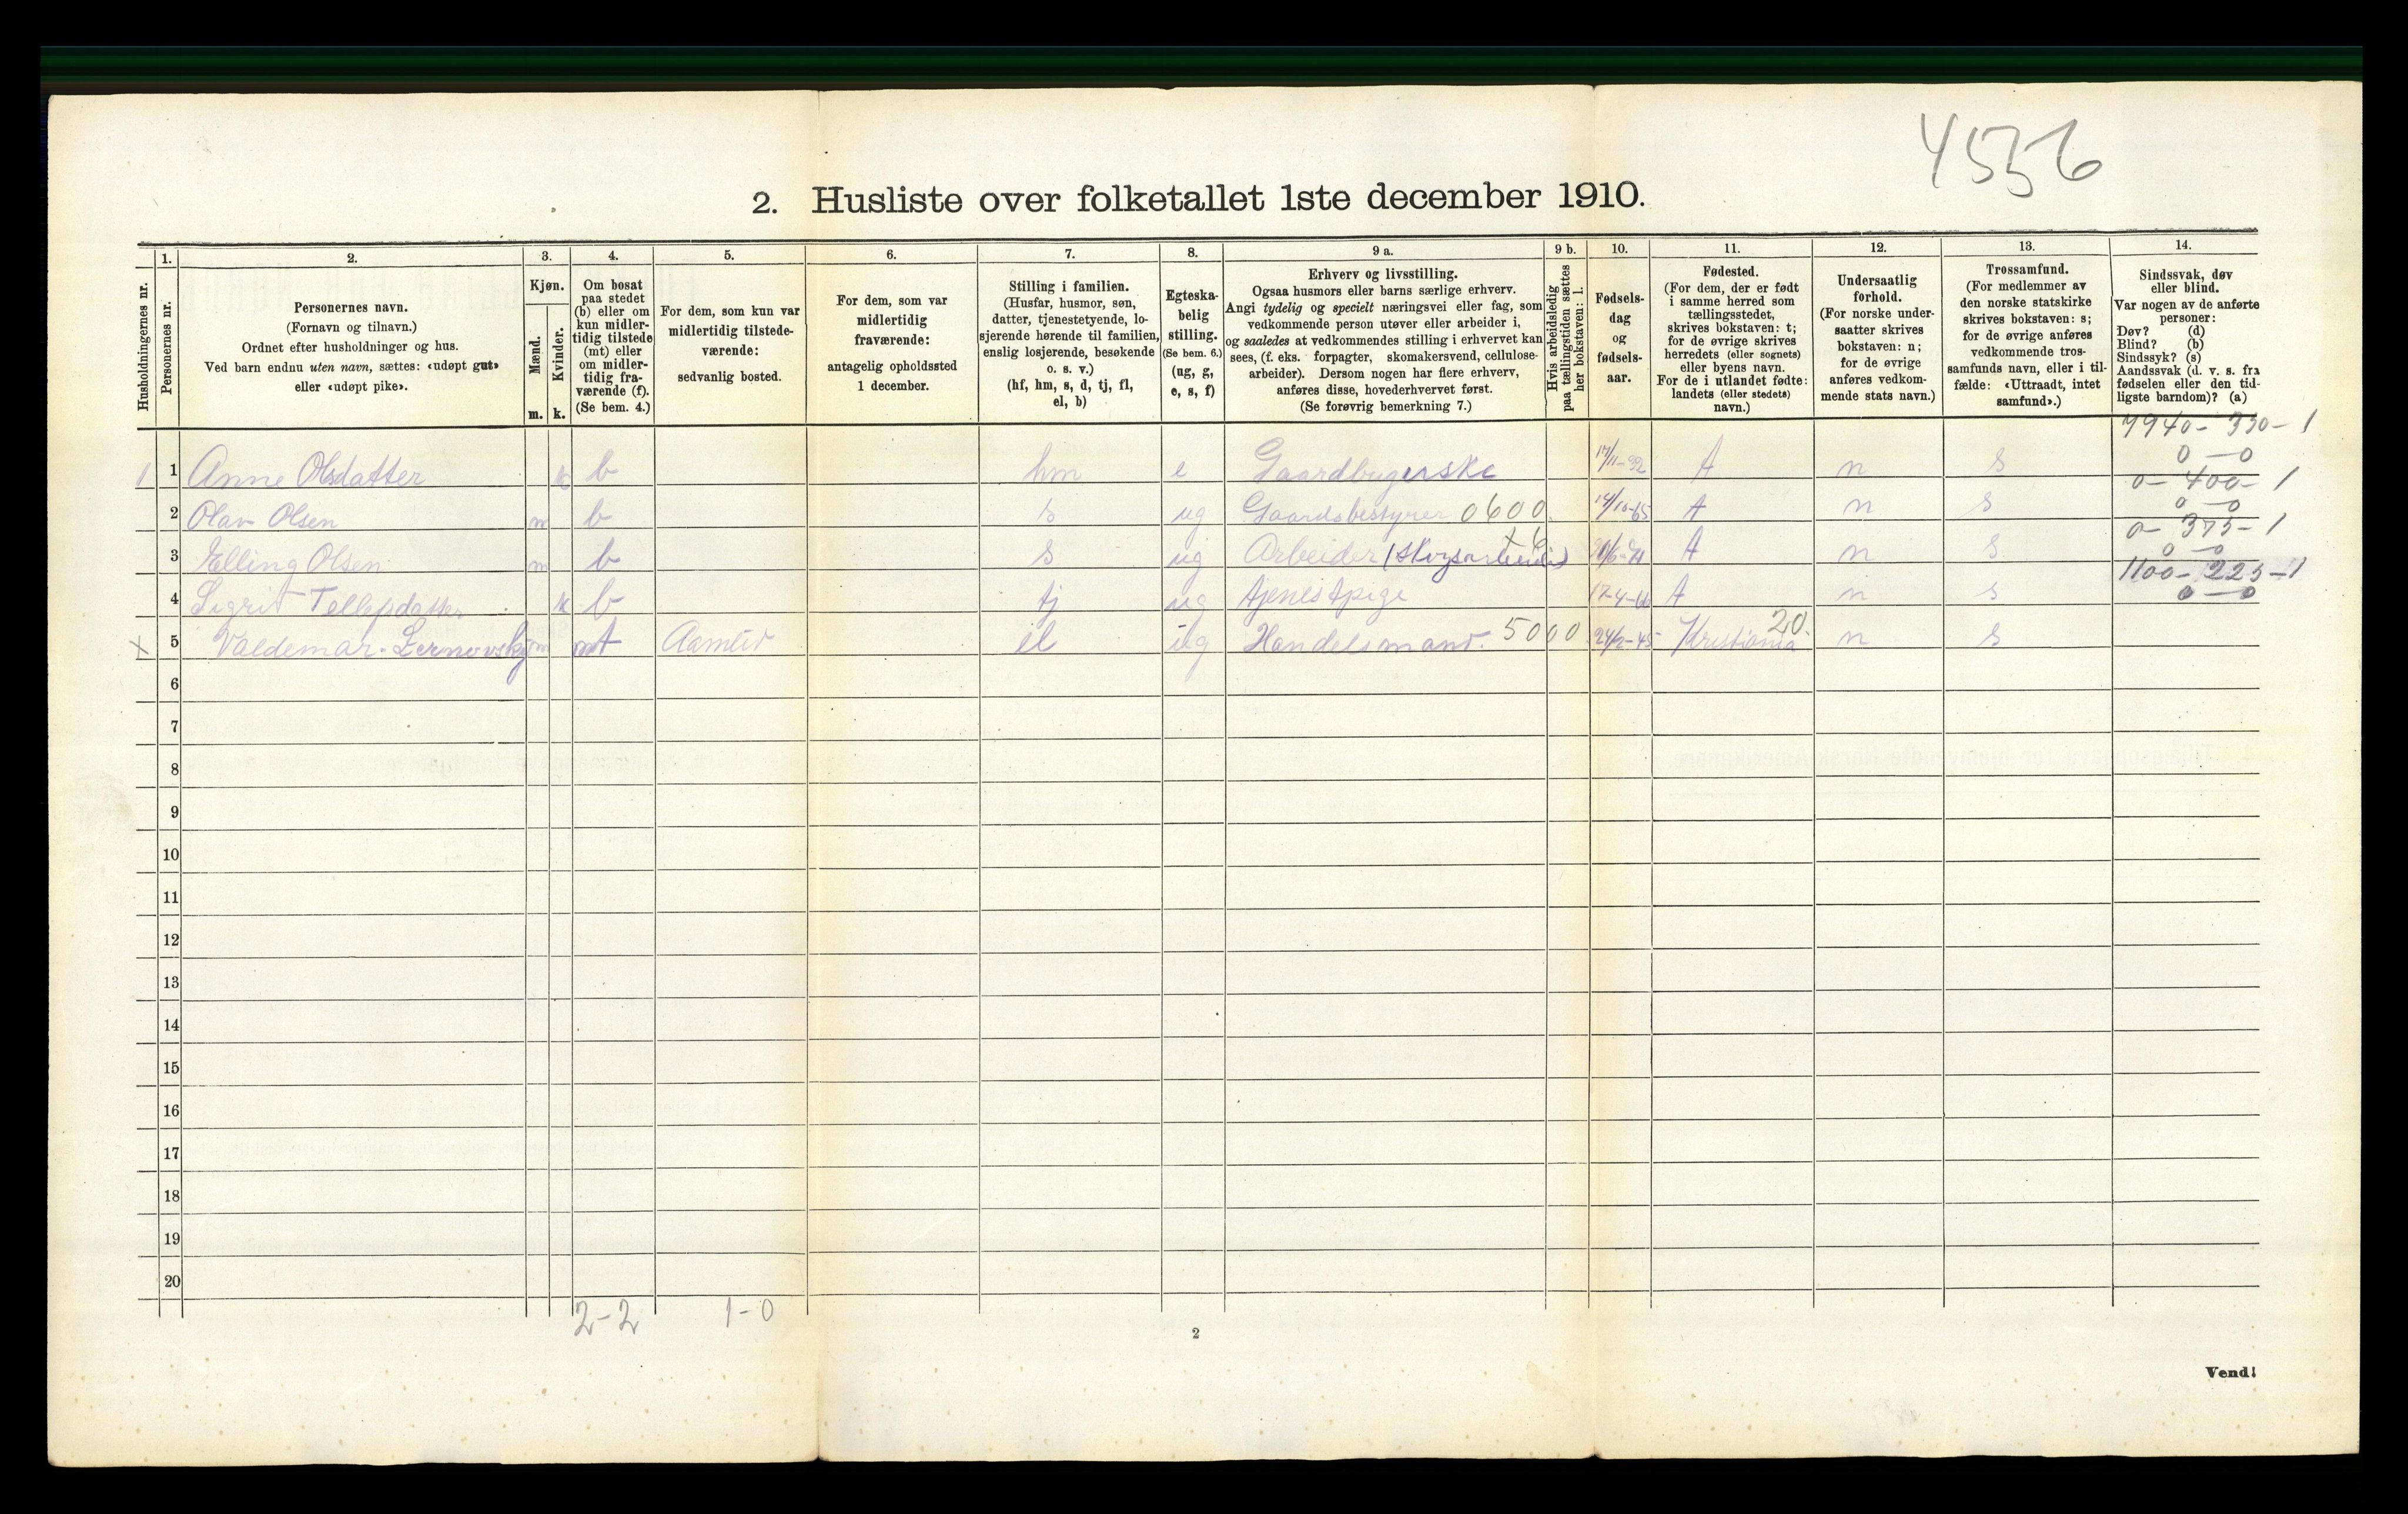 4556
2. Husliste over folketallet 1ste december 1910.
Husholdningernes nr.
1.
Personernes nr.
2.
Personernes navn.
(Fornavn og tilnavn.)
Ordnet efter husholdninger og hus.
Ved barn endnu uten navn, sættes: «udøpt gut»
eller «udøpt pike».
3.
Kjøn.
Mænd.
Kvinder.
m. k.
4.
Om bosat
paa stedet
(b) eller om
kun midler-
tidig tilstede
(mt) eller
om midler-
tidig fra-
værende (f).
(Se bem. 4.)
5.
For dem, som kun var
midlertidig tilstede-
værende:
sedvanlig bosted.
6.
For dem, som var
midlertidig
fraværende:
antagelig opholdssted
1 december.
7.
Stilling i familien.
(Husfar, husmor, søn,
datter, tjenestetyende, lo-
sjerende hørende til familien,
enslig losjerende, besøkende
o. s. v.)
(hf, hm, s, d, tj, fl,
el, b)
8.
Egteska-
belig
stilling.
(Se bem. 6.)
(ug, g,
e, s, f)
9 a.
Erhverv og livsstilling.
Ogsaa husmors eller barns særlige erhverv.
Angi tydelig og specielt næringsvei eller fag, som
vedkommende person utøver eller arbeider i,
og saaledes at vedkommendes stilling i erhvervet kan
sees, (f. eks. forpagter, skomakersvend, cellulose-
arbeider). Dersom nogen har flere erhverv,
anføres disse, hovederhvervet først.
(Se forøvrig bemerkning 7.)
9 b.
Hvis arbeidsledig
paa tællingstiden sættes
her bokstaven: l.
10.
Fødsels-
dag
og
fødsels-
aar.
11.
Fødested.
(For dem, der er født
i samme herred som
tællingsstedet,
skrives bokstaven: t;
for de øvrige skrives
herredets (eller sognets)
eller byens navn.
For de i utlandet fødte:
landets (eller stedets)
navn.)
12.
Undersaatlig
forhold.
(For norske under-
saatter skrives
bokstaven: n;
for de øvrige
anføres vedkom-
mende stats navn.)
13.
Trossamfund.
(For medlemmer av
den norske statskirke
skrives bokstaven: s;
for de øvrige anføres
vedkommende tros-
samfunds navn, eller i til-
fælde: «Uttraadt, intet
samfund».)
14.
Sindssvak, døv
eller blind.
Var nogen av de anførte
personer:
Døv? (d)
Blind? (b)
Sindssyk? (s)
Aandssvak (d. v. s. fra
fødselen eller den tid-
ligste barndom)? (a)
7940- 330- 1
1 1 Anne Olsdatter k b hm e Gaardbrugerske n s 0-0
0- 400- 1
2 Olav Olsen m b s ug Gaardsbestyrer 0600 14/10-65 n s 0-0
0- 375- 1
3 Elling Olsen m b s ug Arbeider (skogsarbeide) n s 0-0
1100- 225-1
4 Sigrit Tellefsdatter k b tj ug tjenestpige 17-4-66 n s 0-0
x 5 Valdemar m mt Aamlid el ug Handelsmand. 5000 24/2-45 Kristiania 20. n s
6
7
8
9
10
11
12
13
14
15
16
17
18
19
20
2-2 1-0
2
Vend!